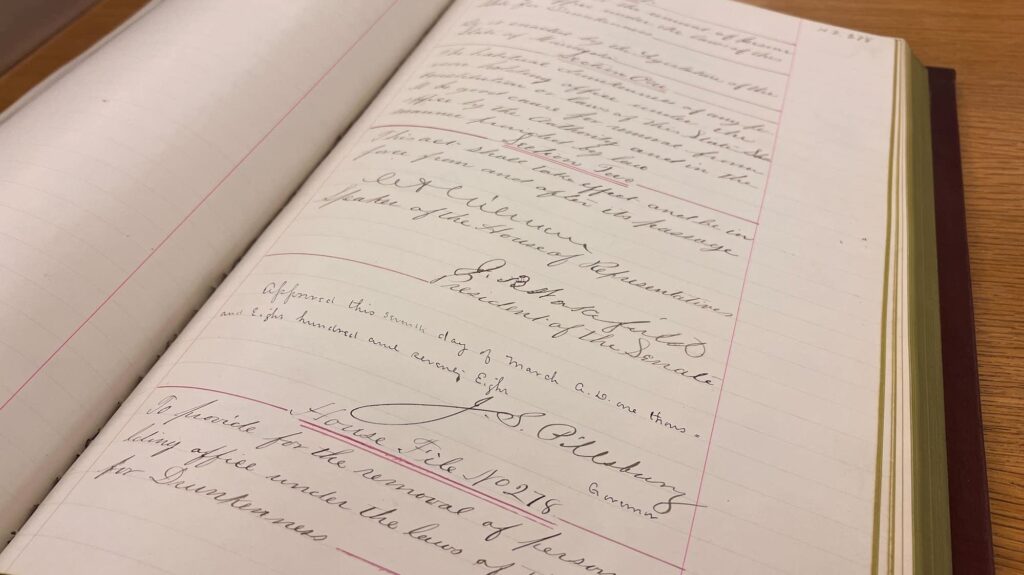 H.F. 278
for Drunkenness
Be it enacted by the Legislature of the
State of Minnesota
Section One
The habitual drunkenness of any per-
son holding office under the
Constitution or laws of this State shall
be good cause for removal from
office by the authority and in the
manner provided by law
Section Two
This act shall take effect and be in
force from and after its passage
Speaker of the House of Representatives
President of the Senate
Approved this day of March A.D. one thous-
and Eight hundred and seventy Eight
J S Pillsbury
Governor
House File No 278
To provide for the removal of persons
lding office under the laws of
for Drunkenness